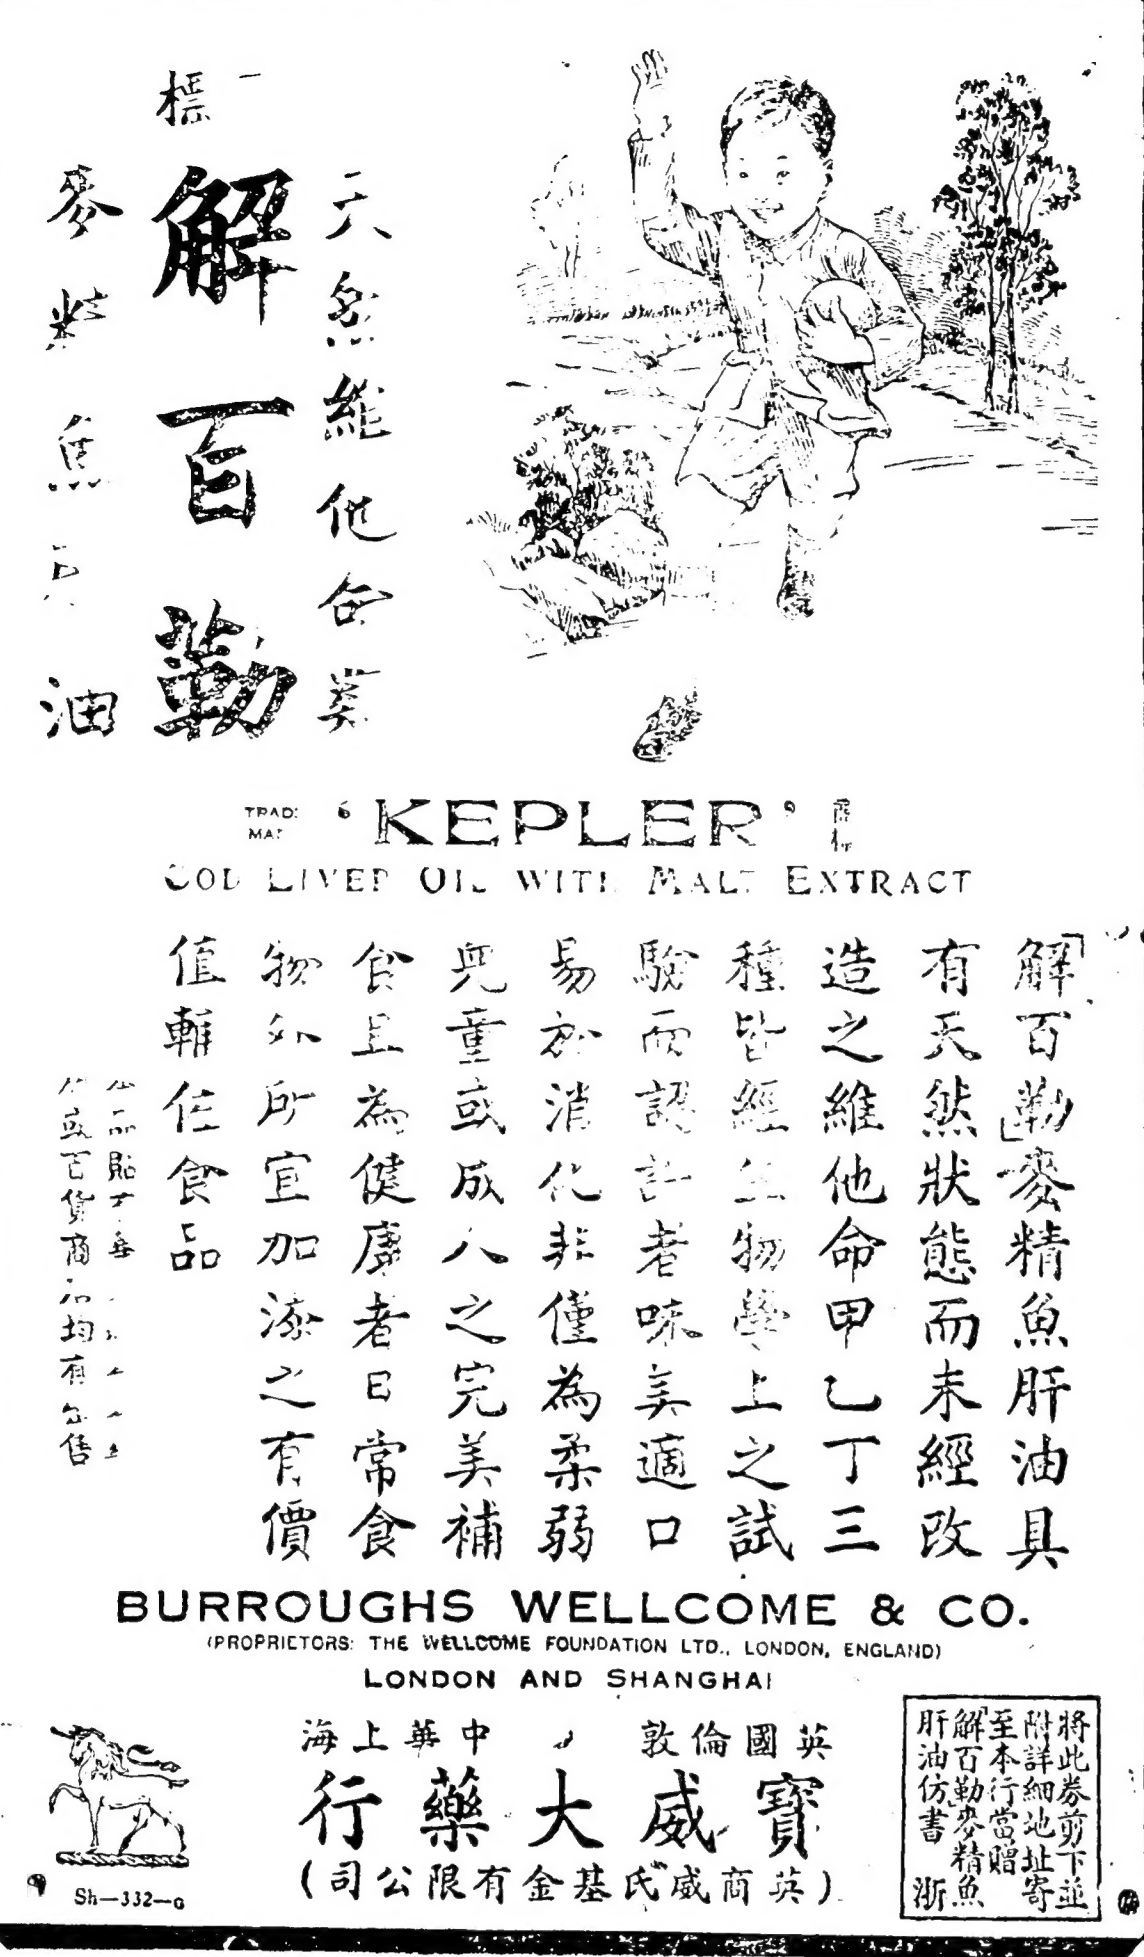 天然維他命
標
解百勒
麥精魚肝油
'KEPLER'
COD LIVER OIL WITH MALT EXTRACT
「解百勒」麥精魚肝油具
有天然狀態而未經改
造之維他命甲乙丁三
種皆經生物學上之試
驗而認許者味美適口
易於消化非僅為柔弱
兒童或成人之完美補
食且為健康者日常食
物外所宜加添之有價
值輔佐食品
或百貨商店均有出售
BURROUGHS WELLCOME & CO.
(PROPRIETORS: THE WELLCOME FOUNDATION LTD., LONDON, ENGLAND)
LONDON AND SHANGHAI
英國倫敦 中華上海
寶威大藥行
(英商威氏基金有限公司)
將此券剪下並
附詳細地址寄
至本行當贈
「解百勒」麥精魚
肝油仿書 浙
Sh—332—G